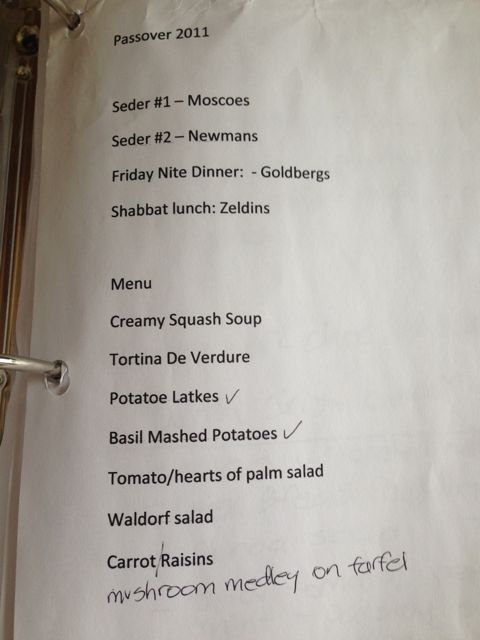 Passover 2011
Seder #1 – Moscoes
Seder #2 – Newmans
Friday Nite Dinner:  - Goldbergs
Shabbat lunch: Zeldins
Menu
Creamy Squash Soup
Tortina De Verdure
Potatoe Latkes ✓
Basil Mashed Potatoes ✓
Tomato/hearts of palm salad
Waldorf salad
Carrot/Raisins
mushroom medley on farfel